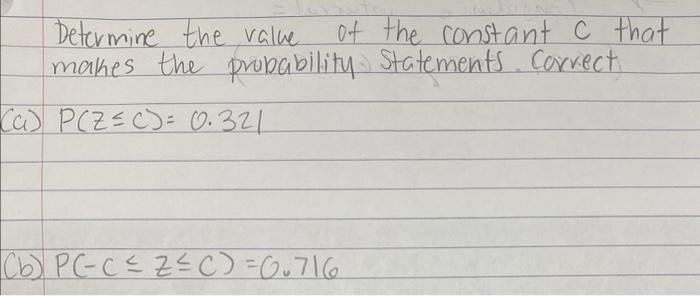 Determine the value of the constant C that
makes the probability Statements. Correct
(a) P(Z ≤ C) = 0.321
(b) P(-C ≤ Z ≤ C) = 0.716